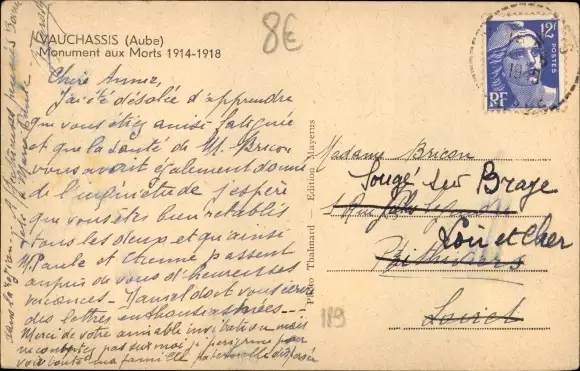 VAUCHASSIS (Aube)
Monument aux Morts 1914-1918
8€
12F
POSTES
RF
Chère Annez,
J'ai été désolée d'apprendre
que vous étiez aussi fatiguée
et que la santé de M. Bricon
vous avait également donné
de l'inquiétude j'espère
que vous êtes bien rétablis
tous les deux et qu'ainsi
M. Paule et Etienne passent
auprès de vous d'heureuses
vacances - doit vous écrire
des lettres enthousiasmées ---
Merci de votre aimable invitation mais
ne comptez pas sur moi, je
voir toute ma famille paternelle dispersée
dans la région
Photo Thalmard - Edition Mayerus
Madame Bricon
Sougé sur Braye
Loir et Cher
Pithiviers
Loiret
119